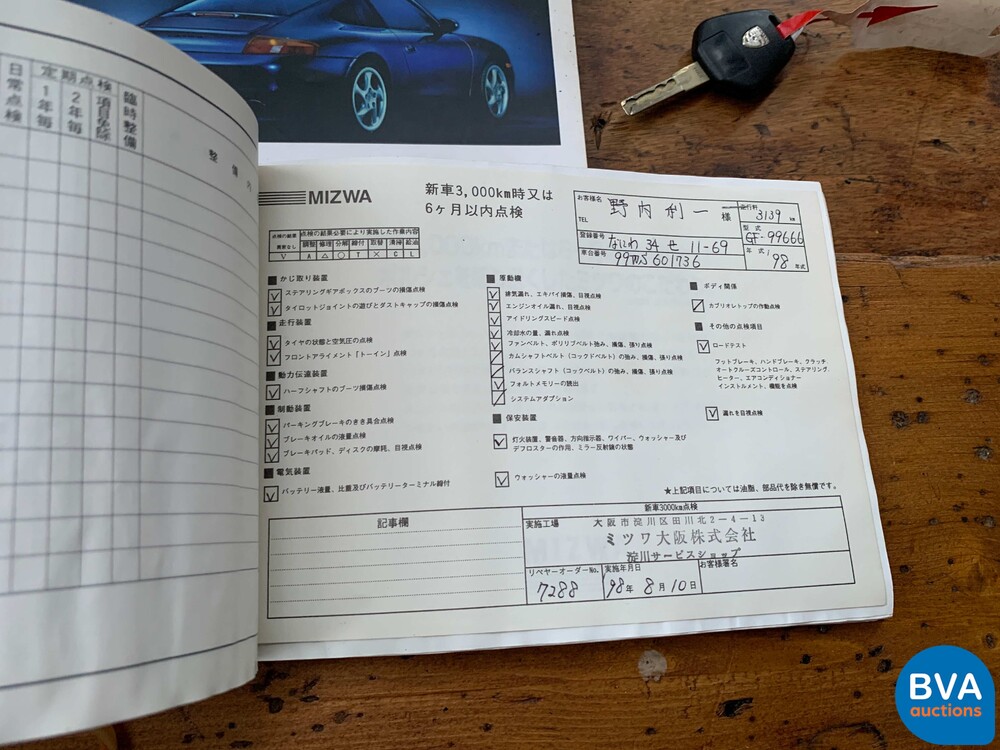 日常点検
定期点検
1年毎
2年毎
項目免除
臨時整備
整備内
MIZWA
新車3,000km時又は
6ヶ月以内点検
お客様名
野内利一 様
TEL
走行粁 3139 km
登録番号 なにわ 34 せ 11-69
型式 GF-99666
車台番号
年式 '98 年式
点検の結果異常なし
点検の結果必要により実施した作業内容
調整 修理 分解 締付 取替 清掃 給油
V A △ ○ T × C L
かじ取り装置
ステアリングギアボックスのブーツの損傷点検
タイロットジョイントの遊びとダストキャップの損傷点検
走行装置
タイヤの状態と空気圧の点検
フロントアライメント「トーイン」点検
動力伝達装置
ハーフシャフトのブーツ損傷点検
制動装置
パーキングブレーキのきき具合点検
ブレーキオイルの液量点検
ブレーキパッド、ディスクの摩耗、目視点検
電気装置
バッテリー液量、比重及びバッテリーターミナル締付
原動機
排気漏れ、エキパイ損傷、目視点検
エンジンオイル漏れ、目視点検
アイドリングスピード点検
冷却水の量、漏れ点検
ファンベルト、ポリリブベルト弛み、損傷、張り点検
カムシャフトベルト(コックドベルト)の弛み、損傷、張り点検
バランスシャフト(コックベルト)の弛み、損傷、張り点検
フォルトメモリーの読出
システムアダプション
保安装置
灯火装置、警音器、方向指示器、ワイパー、ウォッシャー及び
デフロスターの作用、ミラー反射鏡の状態
ウォッシャーの液量点検
ボディ関係
カブリオレトップの作動点検
その他の点検項目
ロードテスト
フットブレーキ、ハンドブレーキ、クラッチ
オートクルーズコントロール、ステアリング、
ヒーター、エアコンディショナー
インストルメント、機能を点検
漏れを目視点検
★上記項目については油脂、部品代を除き無償です。
記事欄
新車3000km点検
実施工場
大阪市淀川区田川北2-4-13
ミツワ大阪株式会社
淀川サービスショップ
リペヤーオーダーNo.
7288
実施年月日
98年 8月10日
お客様署名
BVA
auctions